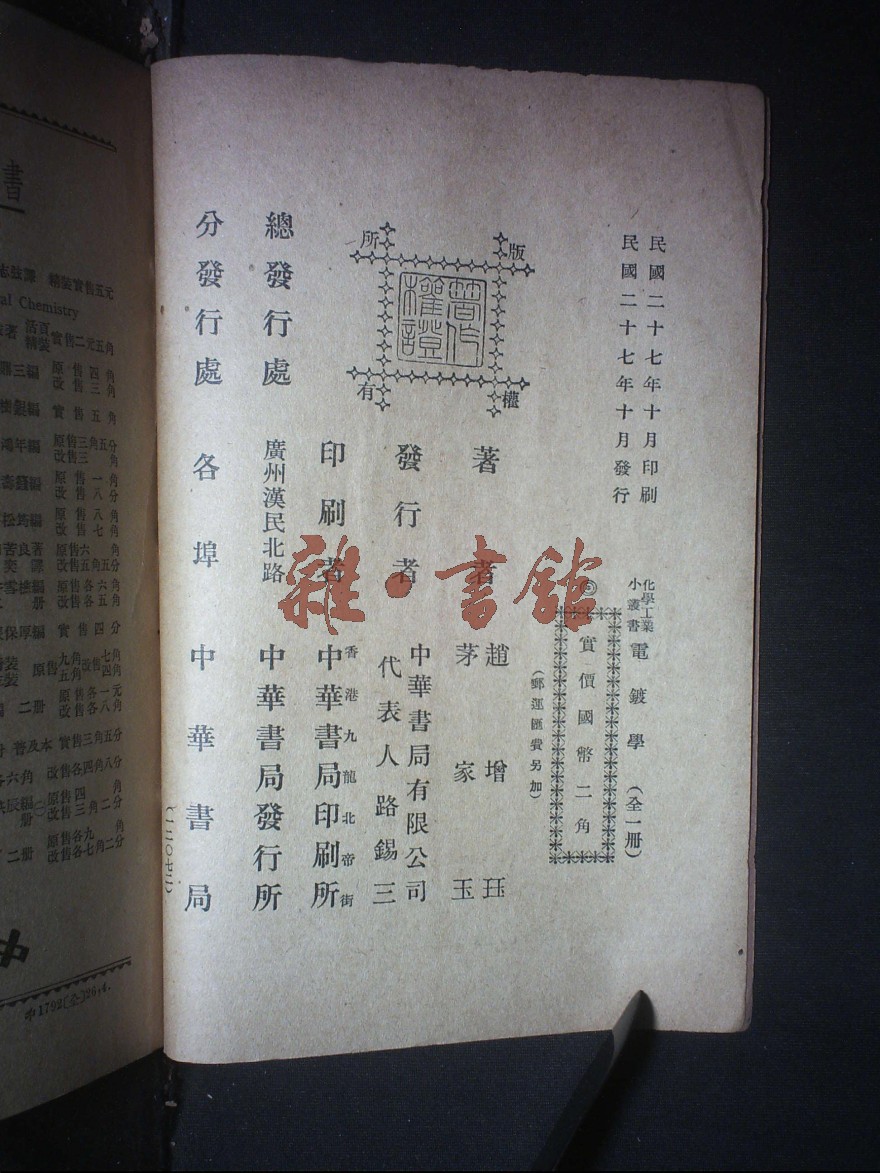 民國二十七年十月印刷
民國二十七年十月發行
化學工業
小叢書
電鍍學（全一册）
◎實價國幣二角
（郵運匯費另加）
版權所有
著者
趙增珏
茅家玉
發行者
中華書局有限公司
代表人路錫三
印刷者
香港九龍北帝街
中華書局印刷所
總發行處
廣州漢民北路
中華書局發行所
分發行處
各埠
中華書局
（一二〇七二）
雜·書館
書
志茲譯 精裝實售五元
al Chemistry
著 活頁精裝 實售二元五角
三編 原售四角 改售三角
編 實售五角
鴻年編 原售三角五分 改售三角
編 原售一角 改售八分
松筠編 原售八角 改售七角
苦良著 原售六角
譯 改售五角五分
編 原售各六角
册 改售各五角
保厚編 實售四分
裝 原售九角五角 改售七角四角
二册 原售各一元 改售各八角
普及本 實售三角五分
各六角 改售各四角八分
辰編 原售四角
册 改售三角二分
二册 原售各九角 改售各七角二分
中
1792(全)26,4.